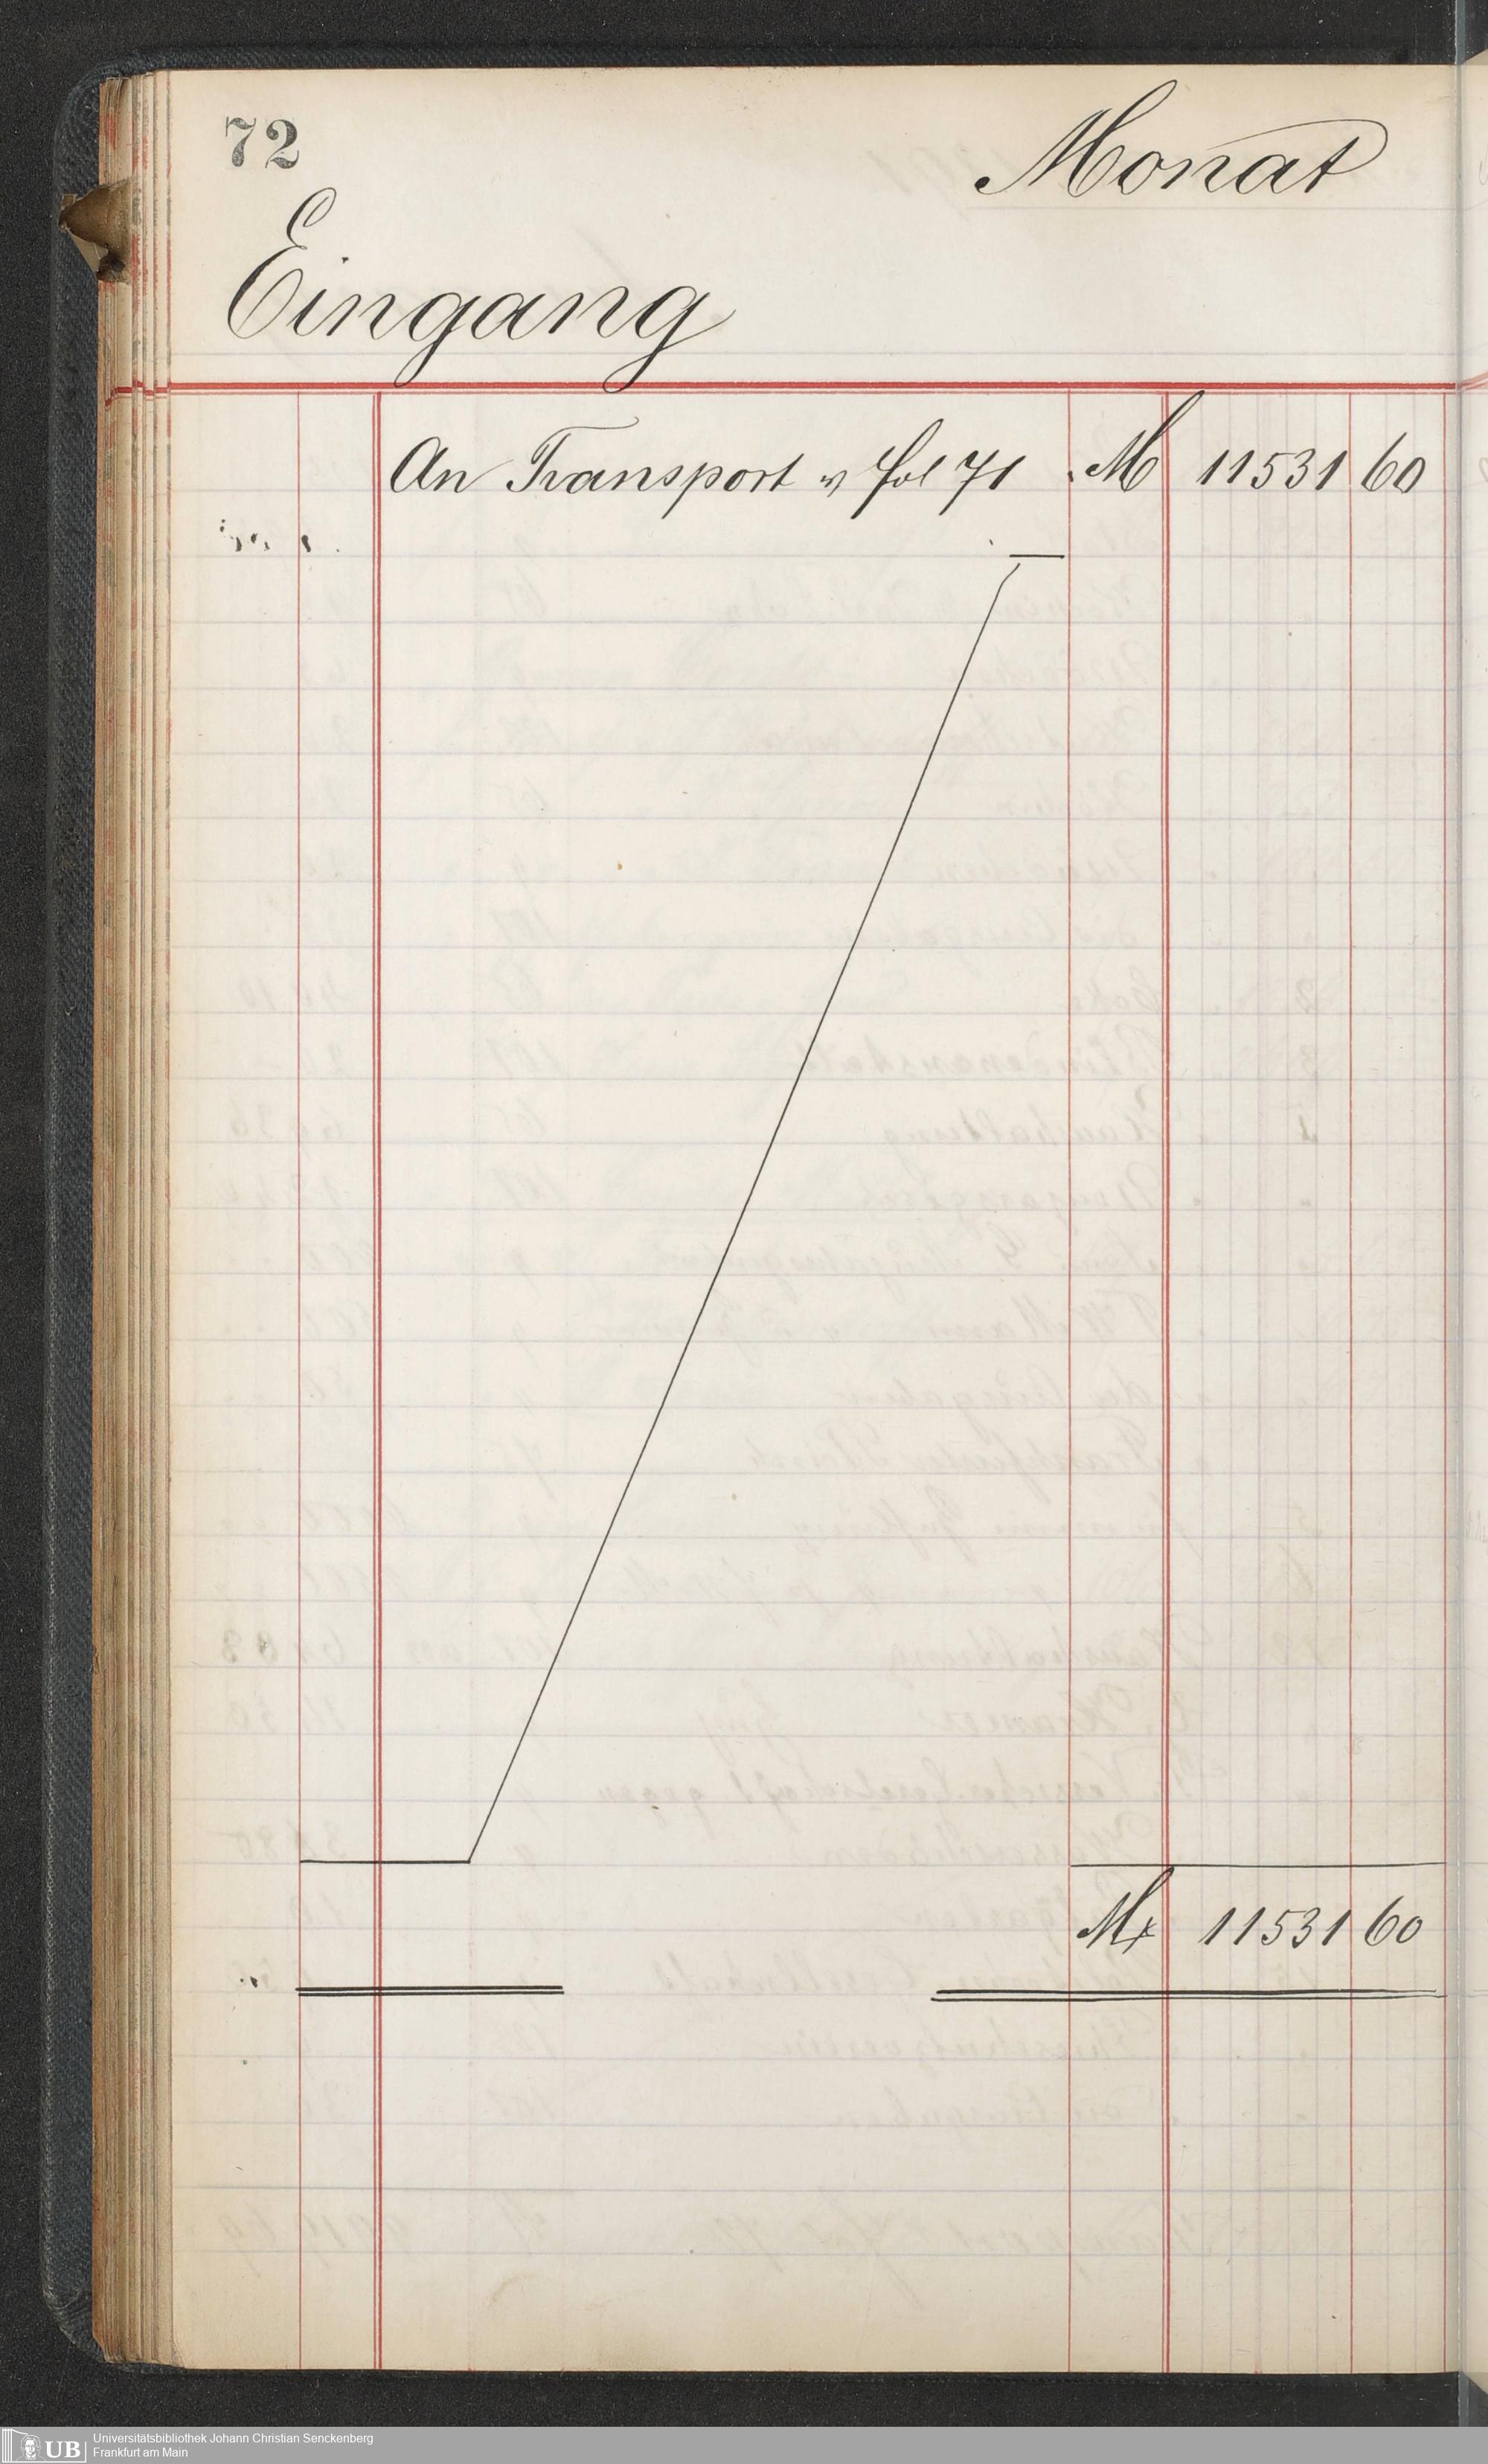 72
Monat
Eingang
An Transport v Fol 71 M 11531 60
M 11531 60
UB Universitätsbibliothek Johann Christian Senckenberg
Frankfurt am Main